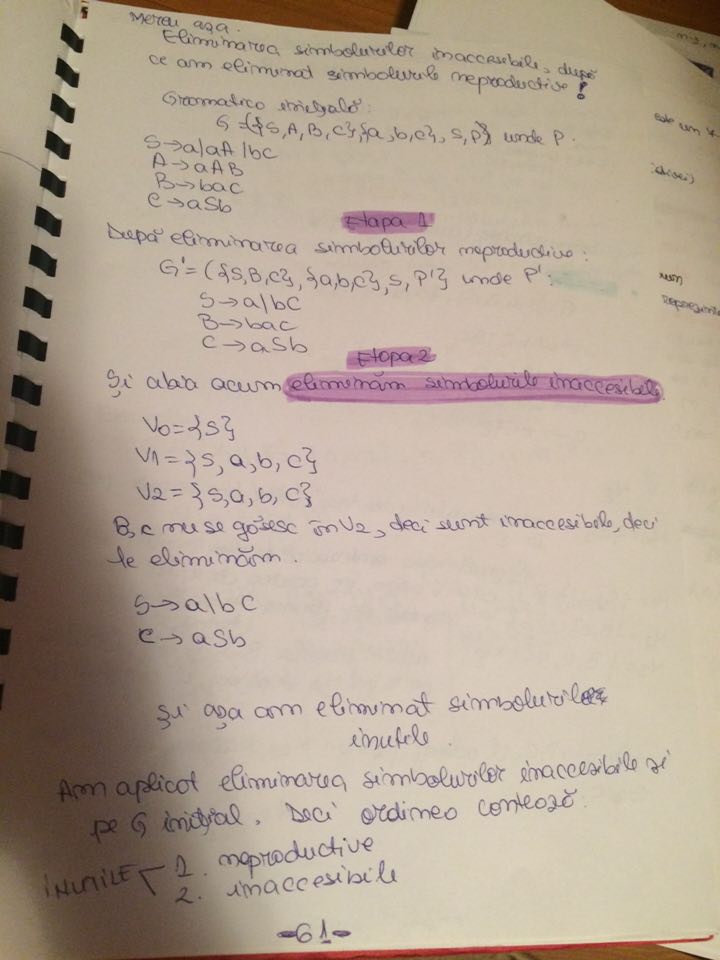 Mereu aşa.
Eliminarea simbolurilor inaccesibile, după
ce am eliminat simbolurile neproductive!
Gramatica iniţială:
G = ({S, A, B, C}, {a, b, c}, S, P)} unde P.
S→a|aA|bC
A→aAB
B→bac
C→aSb
Etapa 1
După eliminarea simbolurilor neproductive:
G' = ({S,B,C}, {a,b,c}, S, P'} unde P':
S→a|bC
B→bac
C→aSb
Etapa 2
Şi abia acum eliminăm simbolurile inaccesibile
V0={S}
V1={S, a, b, C}
V2={S, a, b, C}
B, c nu se găsesc în V2, deci sunt inaccesibile, deci
le eliminăm.
S→a|bC
C→aSb
Şi aşa am eliminat simbolurile
inutile.
Am aplicat eliminarea simbolurilor inaccesibile şi
pe G iniţial. Deci ordinea contează.
INUTILE
1. neproductive
2. inaccesibile
-61-
este un